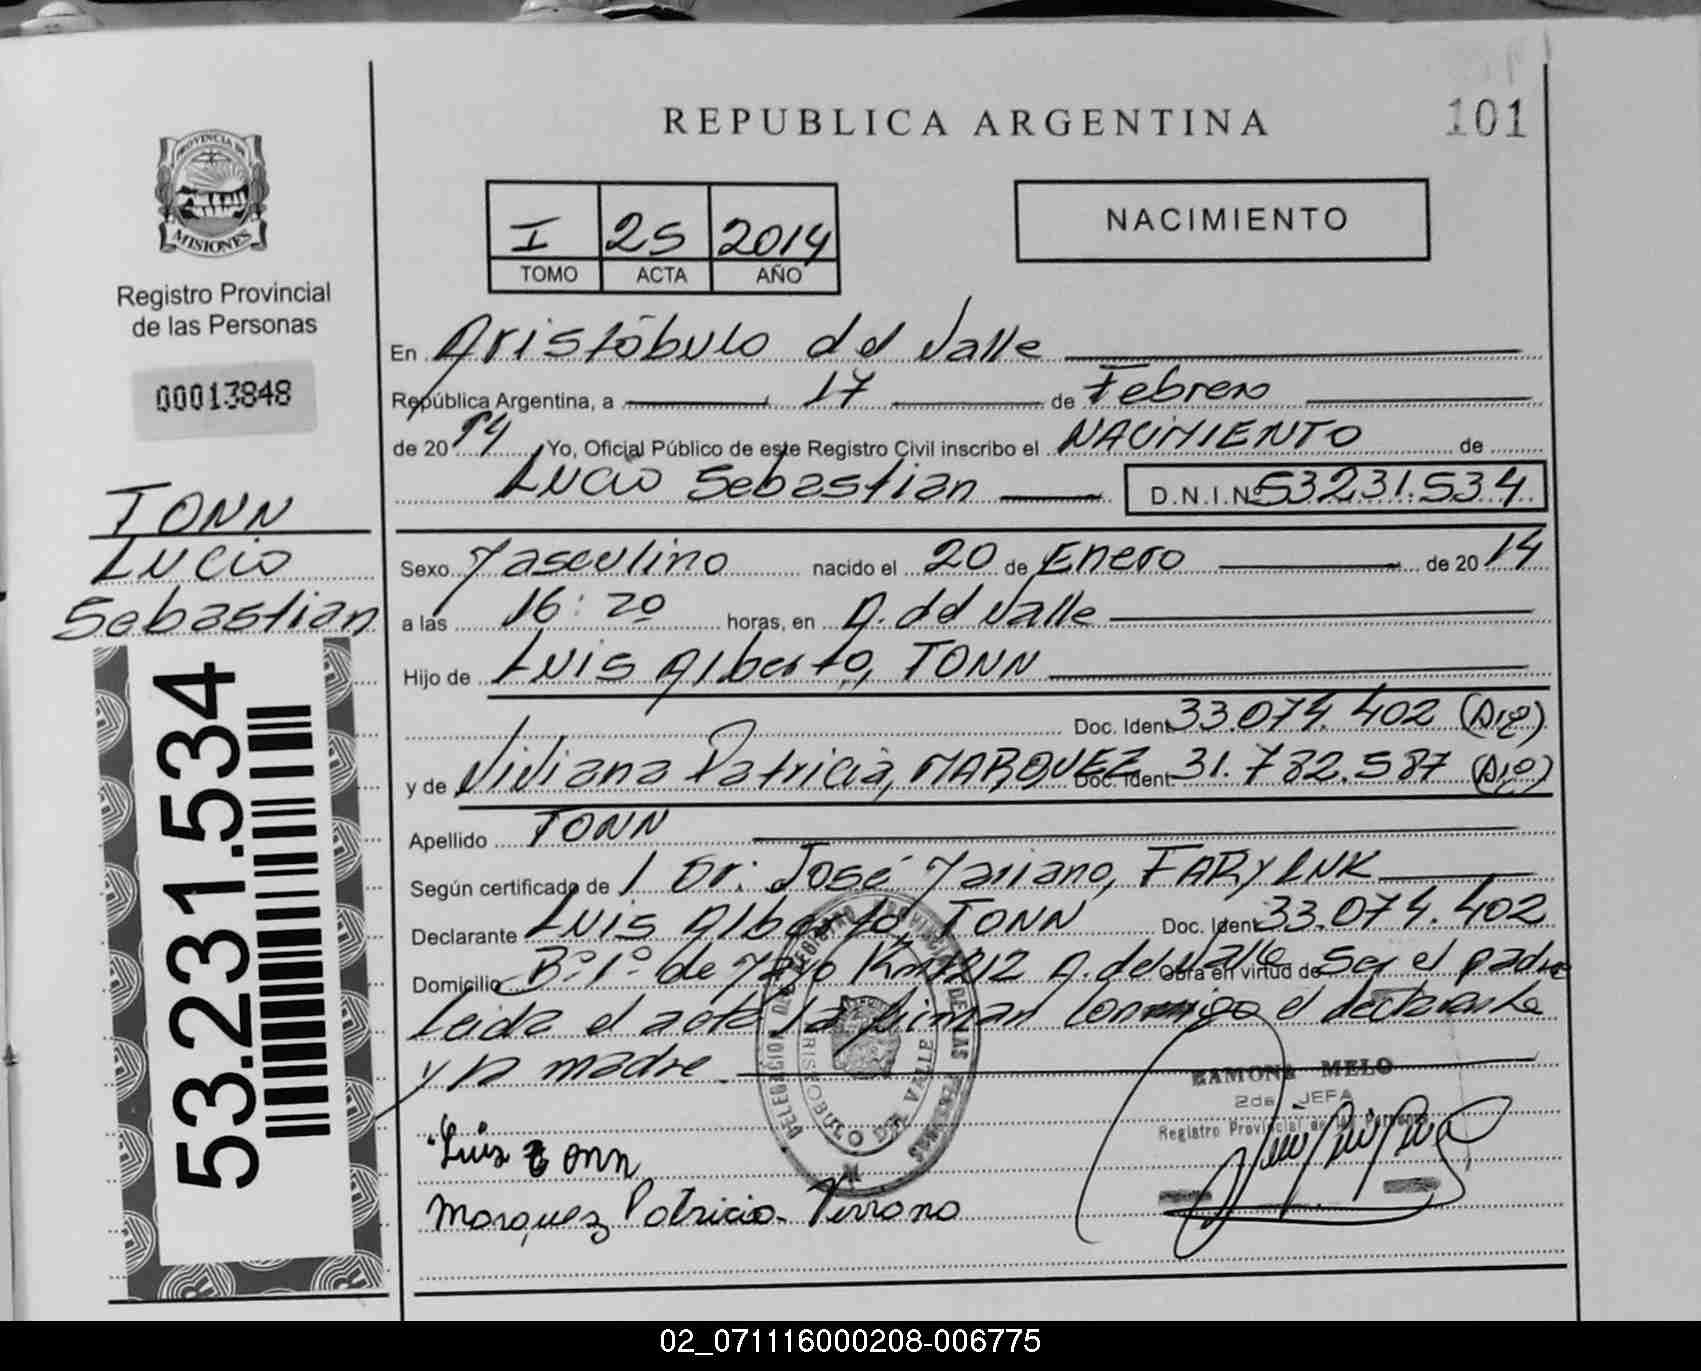 REPUBLICA ARGENTINA
101
PROVINCIA DE
MISIONES
Registro Provincial
de las Personas
00013848
I 25 2014
TOMO ACTA AÑO
NACIMIENTO
En Aristóbulo del Valle
República Argentina, a 17 de Febrero
de 2014 Yo, Oficial Público de este Registro Civil inscribo el NACIMIENTO de
Lucio Sebastian D.N.I.Nº 53.231.534
TONN
Lucio
Sebastian
53.231.534
Sexo Masculino nacido el 20 de Enero de 2014
a las 16:20 horas, en A. del Valle
Hijo de Luis Alberto, TONN
Doc. Ident. 33.074.402 (Arg)
y de Viviana Patricia, MARQUEZ Doc. Ident. 31.782.587 (Arg)
Apellido TONN
Según certificado de 1 Dr: José Mariano, FARYLUK
Declarante Luis Alberto, TONN Doc. Ident. 33.074.402
Domicilio Bº 1º de Mayo Km 1212 A. del Valle Obra en virtud de Ser el padre
Leida el acta la firman conmigo el declarante
y la madre
RAMONA MELO
2da JEFA
Registro Provincial de las Personas
DELEGACION REGISTRO PROVINCIAL DE LAS PERSONAS
ARISTOBULO DEL VALLE
Luis Tonn
Marquez Patricia Viviana
02_071116000208-006775